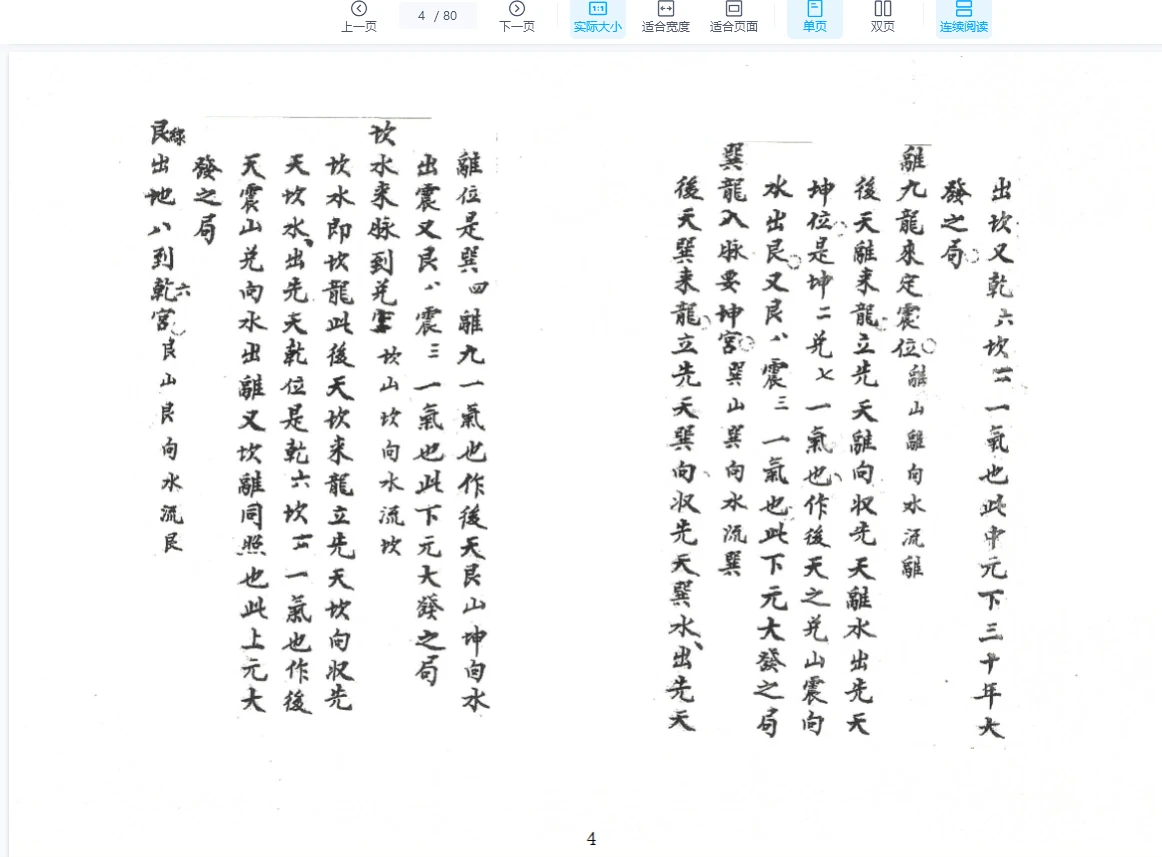 上一页 4 / 80 下一页 实际大小 适合宽度 适合页面 单页 双页 连续阅读
出坎又乾六坎一氣也此中元下三十年大
發之局
離九龍來定震位離山離向水流離
後天離来龍立先天離向収先天離水出先天
坤位是坤二兑七一氣也作後天之兑山震向
水出艮又艮八震三一氣也此下元大發之局
巽龍入脉要坤宮巽山巽向水流巽
後天巽来龍立先天巽向収先天巽水出先天
離位是巽四離九一氣也作後天艮山坤向水
出震又艮八震三一氣也此下元大發之局
坎水来脉到兑坎山坎向水流坎
坎水即坎龍此後天坎来龍立先天坎向収先
天坎水出先天乾位是乾六坎一氣也作後
天震山兑向水出離又坎離同照也此上元大
發之局
艮出地八到乾六宮艮山艮向水流艮
4